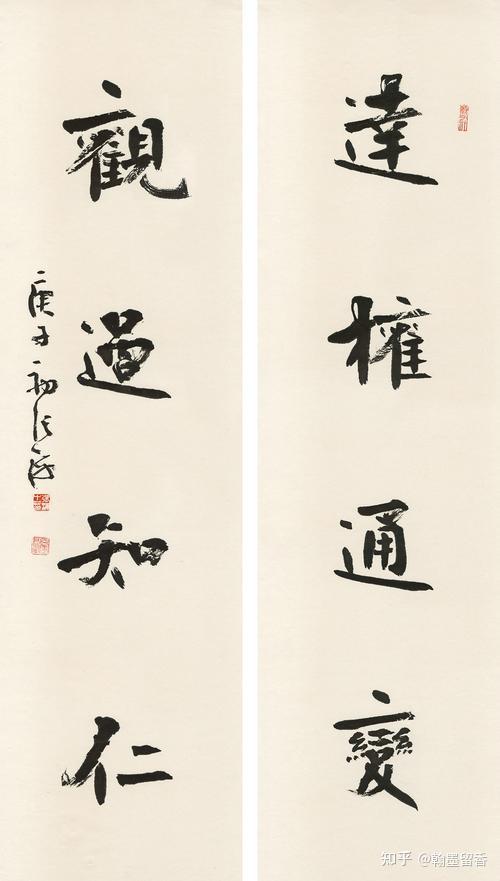 達權通變
觀過知仁
庚子初
知乎 @翰墨留香